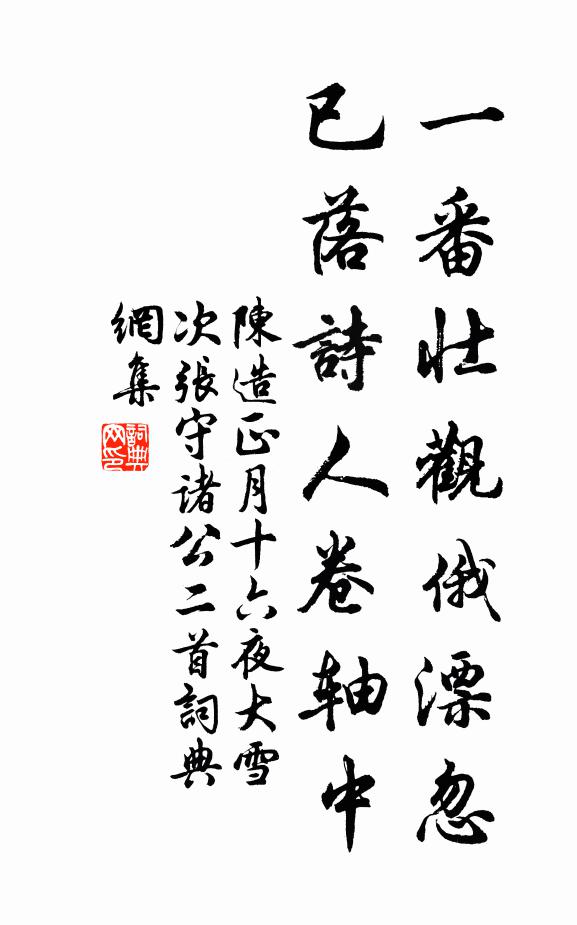 一番壯觀俄漂忽
已落詩人卷軸中
陳造正月十六夜大雪
次張守諸公二首詞典
網集
詞典
网印